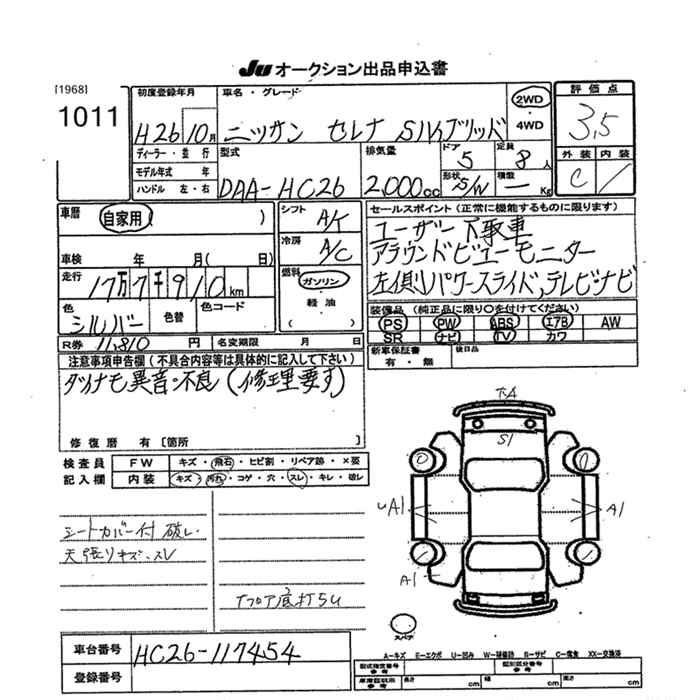 JU オークション出品申込書
[1968]
1011
初度登録年月
H26 10月
車名・グレード
ニッサン セレナ Sハイブリッド
2WD
4WD
評価点
3.5
外装 内装
C /
ディーラー・並行
モデル年式 年
ハンドル 左・右
型式
DAA-HC26
排気量
2,000cc
ドア
5
形状
S/W
定員
8人
積載
— Kg
車歴
自家用 ( )
車検 年 月(日)
走行
17万7千910km
色
シルバー
色替
色コード
R券 11,810 円
名変期限 月 日
シフト
A/T
冷房
A/C
燃料
ガソリン
軽油
( )
セールスポイント(正常に機能するものに限ります)
ユーザー下取車
アラウンドビューモニター
左側パワースライド,テレビ・ナビ
装備品(純正品に限り○を付けてください)
PS PW ABS エアB AW
SR ナビ TV カワ
新車保証書
有・無
後日品
注意事項申告欄(不具合内容等は具体的に記入して下さい)
ダイナモ異音・不良(修理要す)
修復歴 有〔箇所 〕
検査員
記入欄
FW キズ・飛石・ヒビ割・リペア跡・×要
内装 キズ・汚れ・コゲ・穴・スレ・キレ・破レ
シートカバー付 破レ
天張りキズ・スレ
下フロア底打ち
S1
A1
A1
A1
スペア
A=キズ E=エクボ U=凹み W=補修跡 S=サビ C=腐食 XX=交換済
車台番号 HC26-117454
登録番号
型式指定番号
参考
類別区分番号
参考
車庫証明用
参考
長さ cm
幅 cm
高さ cm